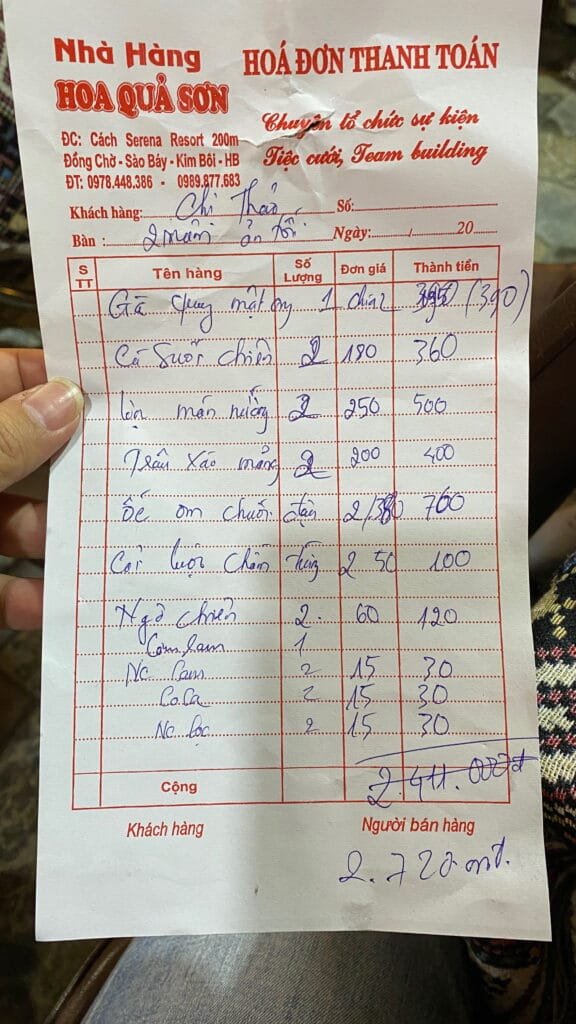 Nhà Hàng
HOA QUẢ SƠN
HOÁ ĐƠN THANH TOÁN
Chuyên tổ chức sự kiện
Tiệc cưới, Team building
ĐC: Cách Serena Resort 200m
Đồng Chờ - Sào Báy - Kim Bôi - HB
ĐT: 0978.448.386 - 0989.877.683
Khách hàng: Chị Thảo Số:
Bàn : 2 mâm ăn tối Ngày: / 20
STT Tên hàng Số Lượng Đơn giá Thành tiền
Gà quay mật ong 1 (390)
Cá Suối chiên 2 180 360
lợn mán nướng 2 250 500
Trâu xào măng 2 200 400
Ếch om chuối đậu 2/380 760
Cải luộc chấm trứng 2 50 100
Ngô chiên 2. 60 120
Cơm lam 1
Nc Cam 2 15 30
CoCa 2 15 30
Nc lọc 2 15 30
Cộng
Khách hàng Người bán hàng